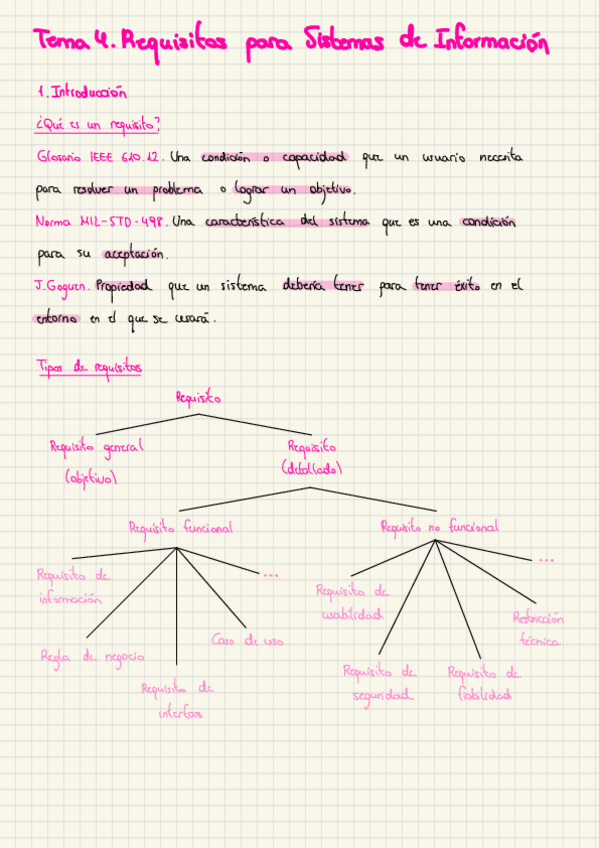 Tema 4. Requisitos para Sistemas de Información
1. Introducción
¿Qué es un requisito?
Glosario IEEE 610.12. Una condición o capacidad que un usuario necesita
para resolver un problema o lograr un objetivo.
Norma MIL-STD-498. Una característica del sistema que es una condición
para su aceptación.
J.Goguen. Propiedad que un sistema debería tener para tener éxito en el
entorno en el que se usará.
Tipos de requisitos
Requisito
Requisito general
(objetivo)
Requisito
(detallado)
Requisito funcional
Requisito no funcional
Requisito de
información
Regla de negocio
Requisito de
interfaz
Caso de uso
...
Requisito de
usabilidad
Requisito de
seguridad
Requisito de
fiabilidad
Restricción
técnica
...